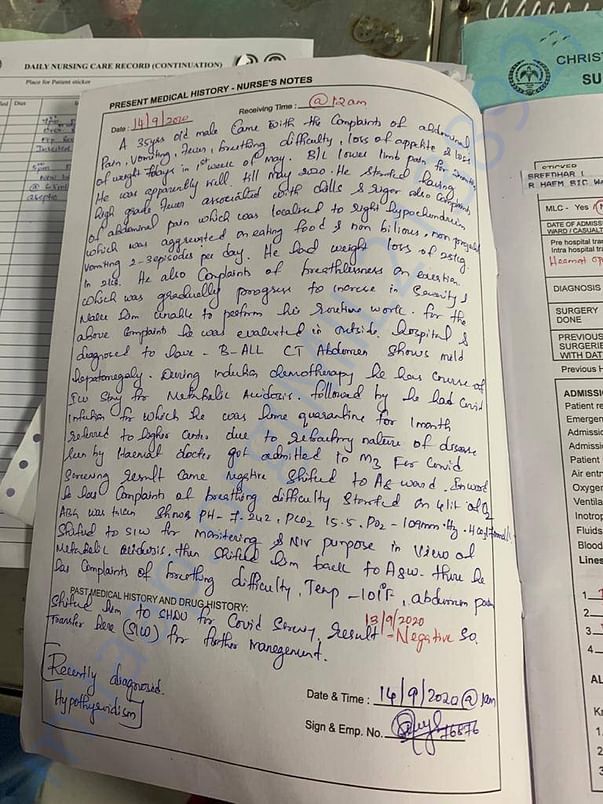 DAILY NURSING CARE RECORD (CONTINUATION)
Place for Patient sticker
PRESENT MEDICAL HISTORY - NURSE'S NOTES
Date : 14/9/2020 Receiving Time : @ 12am
A 35yrs old male came with the complaints of abdominal
pain, vomiting, fever, breathing difficulty, loss of appetite & loss
of weight in 1st week of May. B/L lower limb pain for
He was apparently well till may 2020. He started having
high grade fever associated with chills & rigor also complaints
of abdominal pain which was localised to right hypochondrium
which was aggravated on eating food & non bilious, non projectile
vomiting 2-3 episodes per day. He had weight loss of 25kg
He also complaints of breathlessness on exertion
which was gradually progress to increase in severity &
make him unable to perform his routine work. for the
above complaints he was evaluated in outside hospital &
diagnosed to have - B-ALL CT Abdomen shows mild
hepatomegaly. During induction chemotherapy he has course of
ICU stay for Metabolic Acidosis. followed by he had covid
infection for which he was home quarantine for 1 month
referred to higher center due to refractory nature of disease
seen by Haemat doctor got admitted to M3 For Covid
screening result came negative shifted to A6 ward. In ward
he has complaints of breathing difficulty started on 4lit of O2
ABG was taken shows PH - 7.242, PCO2 15.5, PO2 - 109mmHg,
shifted to SIW for monitoring & NIV purpose in view of
Metabolic acidosis, then shifted him back to A6W. there he
has complaints of breathing difficulty, Temp - 101°F, abdomen pain
PAST MEDICAL HISTORY AND DRUG HISTORY:
shifted him to SHDU for Covid screening, result 13/9/2020 - Negative so
transfer here (SIW) for further management.
Recently diagnosed
Hypothyroidism
Date & Time : 14/9/2020 @ 1am
Sign & Emp. No. 76876
CHRIST
SU
STICKER
SREEDHAR I
MLC - Yes
DATE OF ADMISS
WARD / CASUALT
Pre hospital tra
Intra hospital tr
DIAGNOSIS
SURGERY
DONE
PREVIOUS
SURGERIE
WITH DAT
Previous H
ADMISSI
Patient re
Emergen
Admissio
Admissi
Patient
Air entr
Oxyger
Ventila
Inotrop
Fluids
Blood
Lines
1.
2.
3.
4.
AL